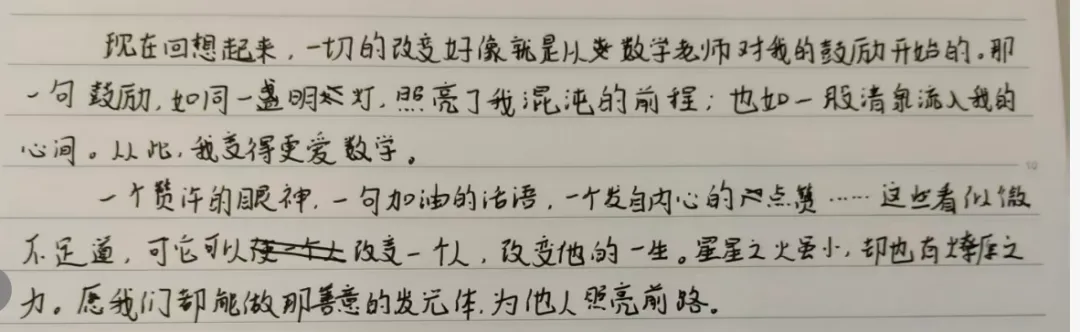 现在回想起来，一切的改变好像就是从数学老师对我的鼓励开始的。那
一句鼓励，如同一盏明灯，照亮了我混沌的前程；也如一股清泉流入我的
心间。从此，我变得更爱数学。
一个赞许的眼神，一句加油的话语，一个发自内心的点赞……这些看似微
不足道，可它可以改变一个人，改变他的一生。星星之火虽小，却也有燎原之
力。愿我们都能做那善意的发光体，为他人照亮前路。